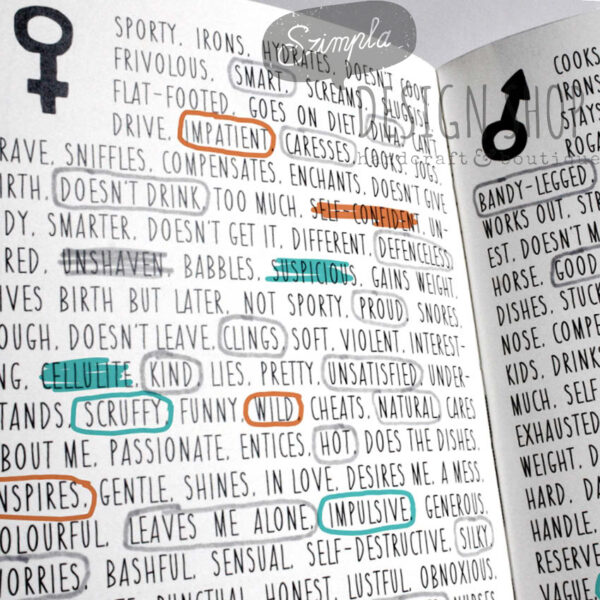 Szimpla
DESIGN SHOP
handcraft & boutique
SPORTY. IRONS. HYDRATES. DOESN'T COOK.
FRIVOLOUS. SMART. SCREAMS. SLUGGISH.
FLAT-FOOTED. GOES ON DIET. DIVA. CAN'T
DRIVE. IMPATIENT. CARESSES. COOKS. JOGS.
RAVE. SNIFFLES. COMPENSATES. ENCHANTS. DOESN'T GIVE
IRTH. DOESN'T DRINK TOO MUCH. SELF-CONFIDENT. UN-
DY. SMARTER. DOESN'T GET IT. DIFFERENT. DEFENCELESS.
RED. UNSHAVEN. BABBLES. SUSPICIOUS. GAINS WEIGHT.
IVES BIRTH BUT LATER. NOT SPORTY. PROUD. SNORES.
OUGH. DOESN'T LEAVE. CLINGS. SOFT. VIOLENT. INTEREST-
NG. CELLULITE. KIND. LIES. PRETTY. UNSATISFIED. UNDER-
TANDS. SCRUFFY. FUNNY. WILD. CHEATS. NATURAL. CARES
ABOUT ME. PASSIONATE. ENTICES. HOT. DOES THE DISHES.
NSPIRES. GENTLE. SHINES. IN LOVE. DESIRES ME. A MESS.
OLOURFUL. LEAVES ME ALONE. IMPULSIVE. GENEROUS.
WORRIES. BASHFUL. SENSUAL. SELF-DESTRUCTIVE. SILKY.
PUNCTUAL. HONEST. LUSTFUL. OBNOXIOUS.
NURSES
COOKS
IRONS
STAYS
ROGA
BANDY-LEGGED
WORKS OUT. STR
EST. DOESN'T M
HORSE. GOOD
DISHES. STUCK
NOSE. COMPE
KIDS. DRINK
MUCH. SELF
EXHAUSTED
WEIGHT. D
HARD. DA
HANDLE.
RESERVE
VAGUE.